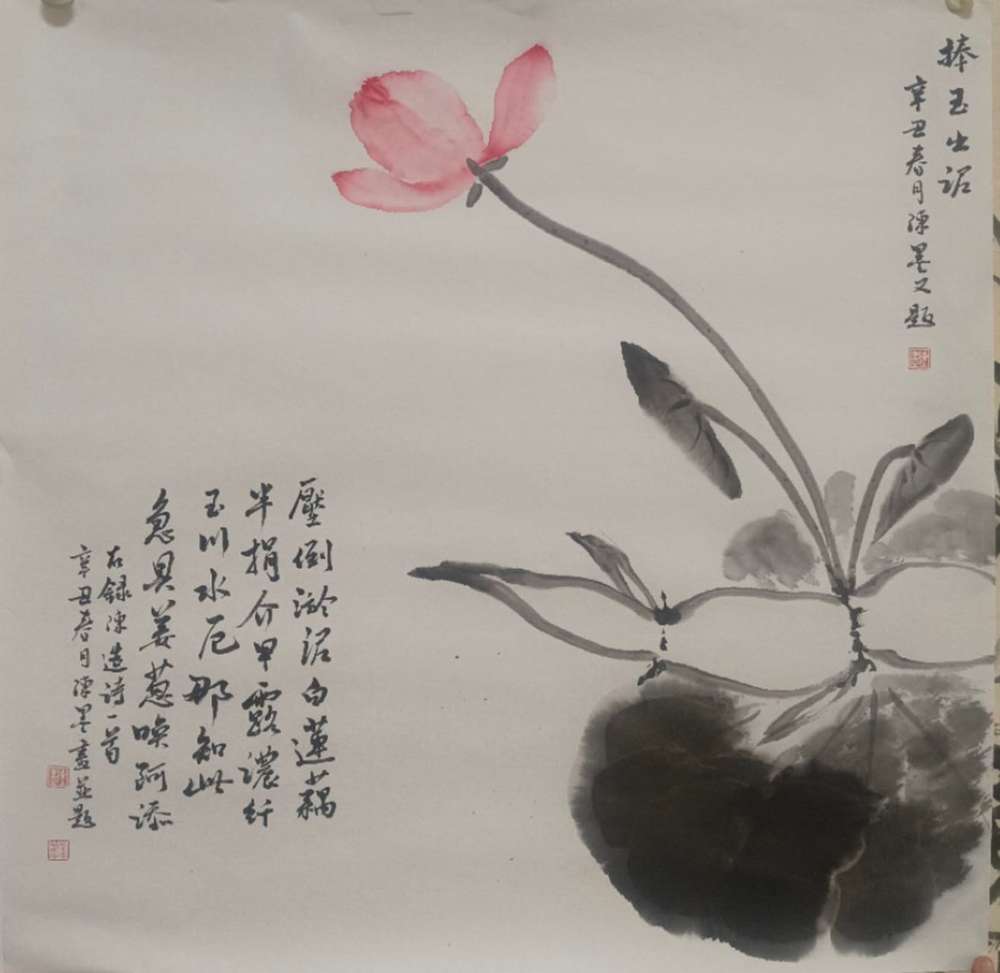 捧玉出泥
辛丑春月陈墨又题
壓倒淤泥白蓮藕
半捐介甲露濃纤
玉川水厄那知此
急具姜葱唤阿添
右録陈造诗一首
辛丑春月陈墨畫並题